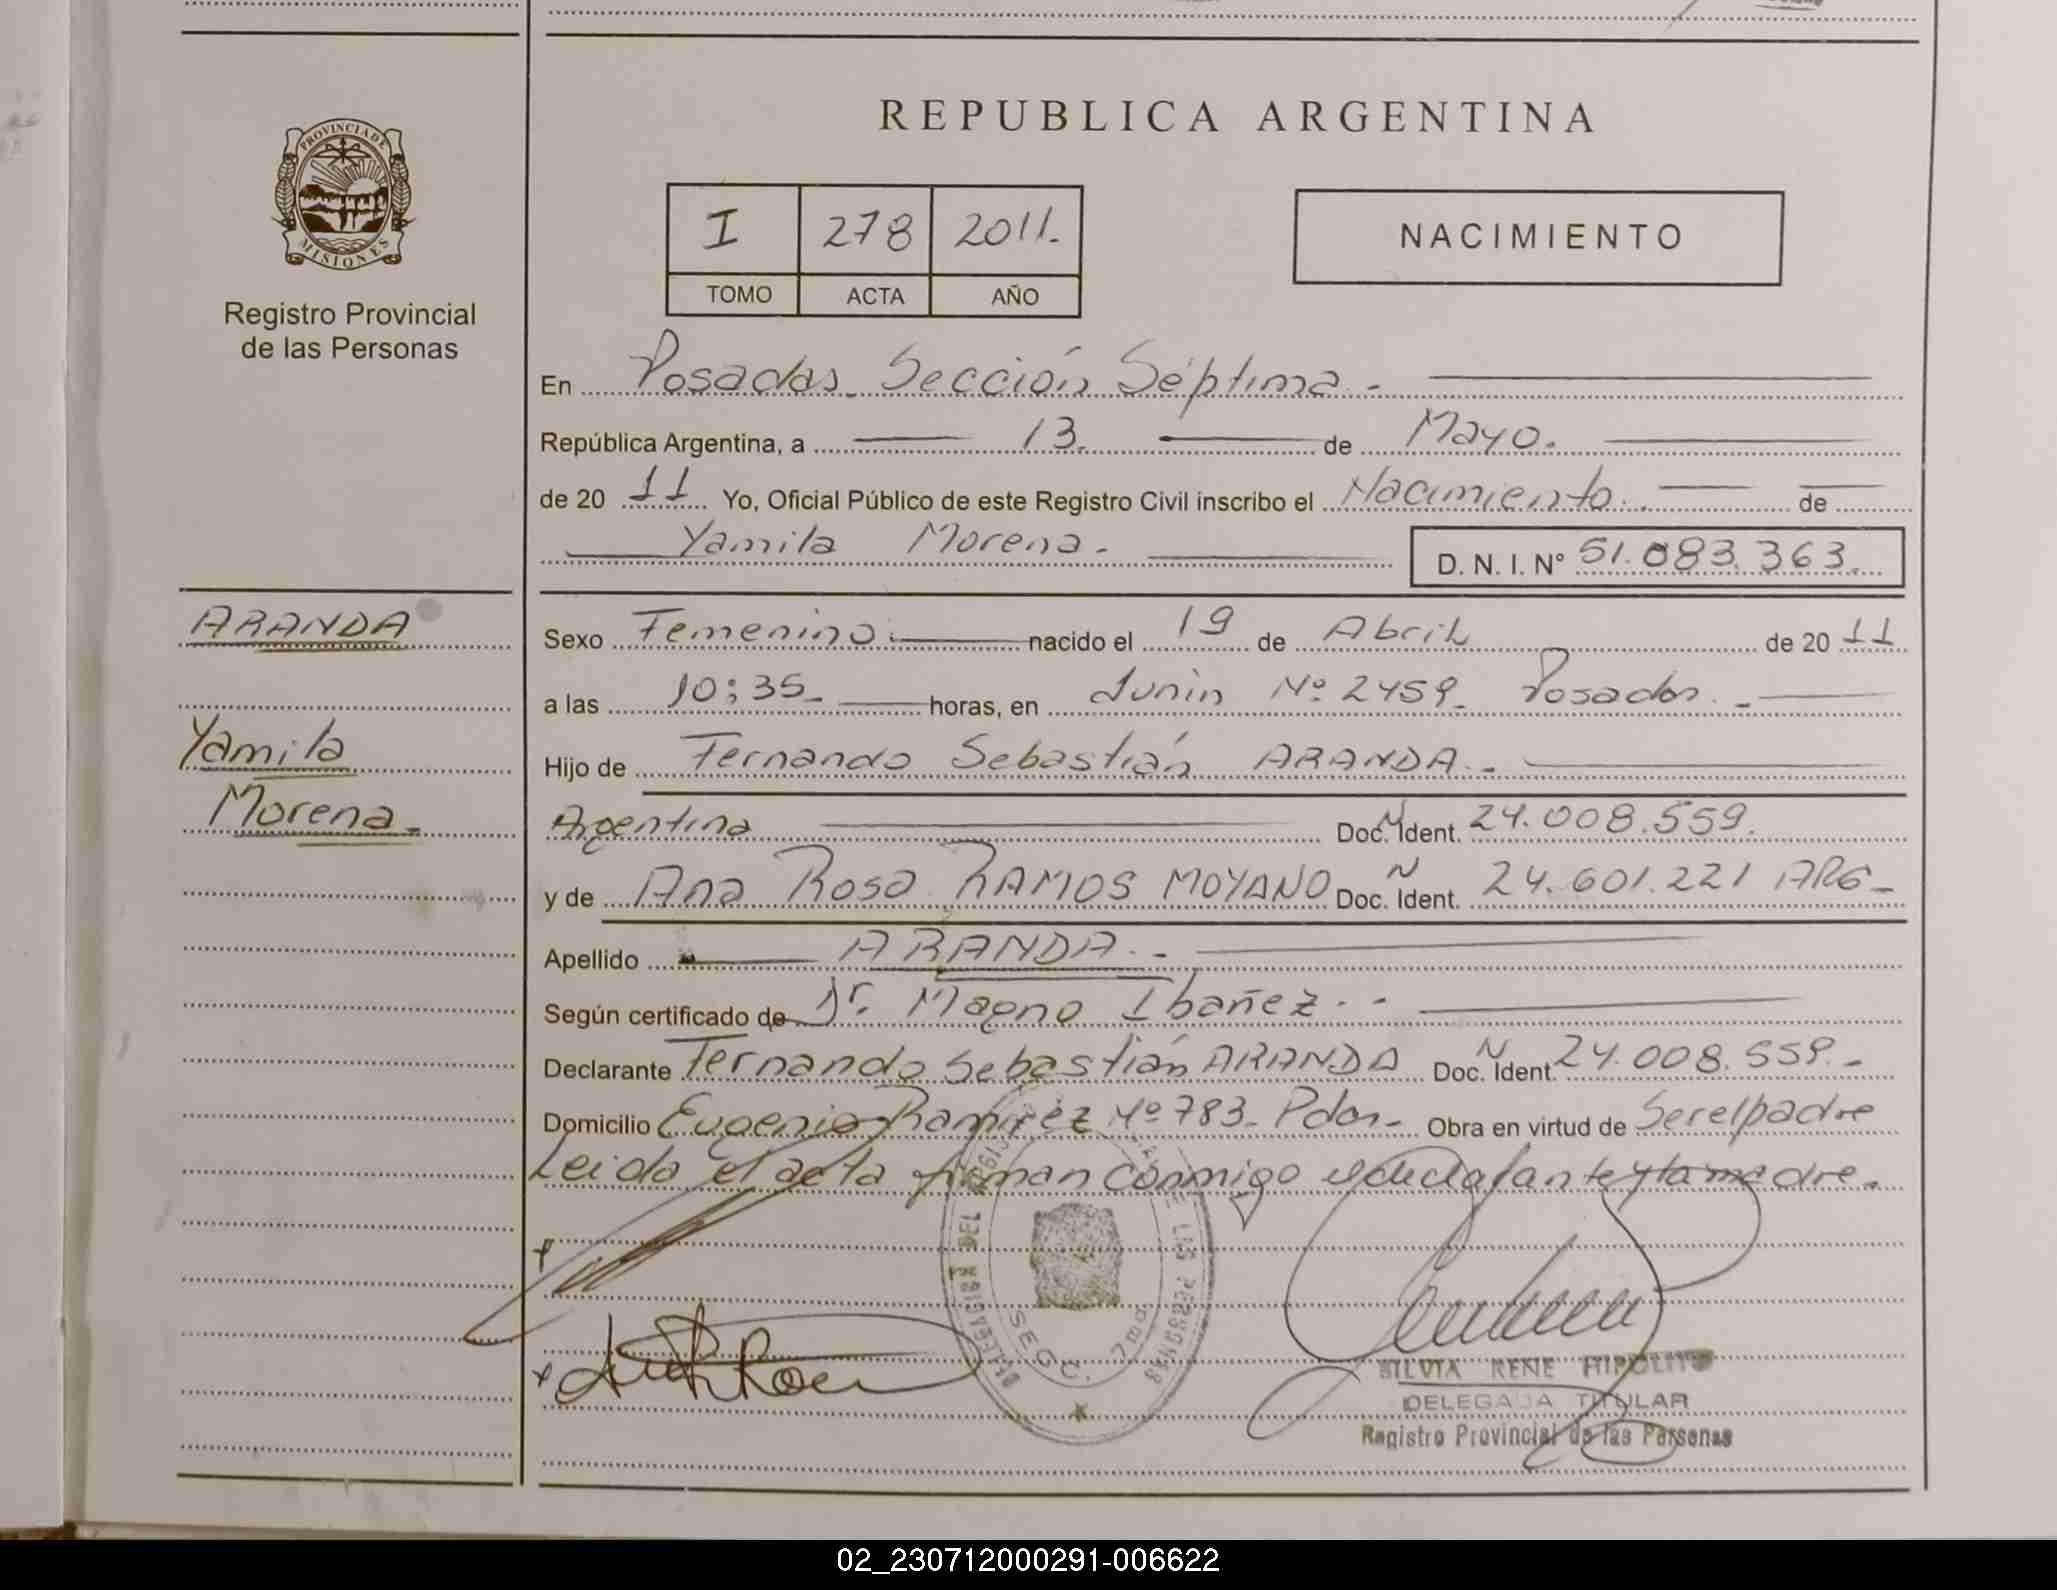 REPUBLICA ARGENTINA
PROVINCIA DE
MISIONES
Registro Provincial
de las Personas
I 278 2011.
TOMO ACTA AÑO
NACIMIENTO
En Posadas Sección Séptima.-
República Argentina, a 13. de Mayo.
de 20 11 Yo, Oficial Público de este Registro Civil inscribo el Nacimiento. de
Yamila Morena.
D. N. I. Nº 51.083.363.
ARANDA
Yamila
Morena.
Sexo Femenino. nacido el 19 de Abril de 20 11
a las 10:35 horas, en Junin Nº 2459 Posadas.
Hijo de Fernando Sebastián ARANDA.-
Argentina Doc. Ident. N 24.008.559.
y de Ana Rosa RAMOS MOYANO Doc. Ident. N 24.601.221 ARG-
Apellido ARANDA.-
Según certificado de Dr. Magno Ibañez.-
Declarante Fernando Sebastián ARANDA Doc. Ident. N 24.008.559.-
Domicilio Eugenio Ramirez Nº 783- Pdas- Obra en virtud de Ser el padre
Leida el acta firman conmigo el declarante y la madre.
DEL
DE LAS PERSONAS
SECC. 7ma
SILVIA RENE HIPOLITO
DELEGADA TITULAR
Registro Provincial de las Personas
02_230712000291-006622